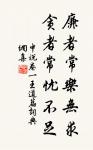 廉者常樂無求
貪者常忧不足
中说卷一王道篇詞典
網集